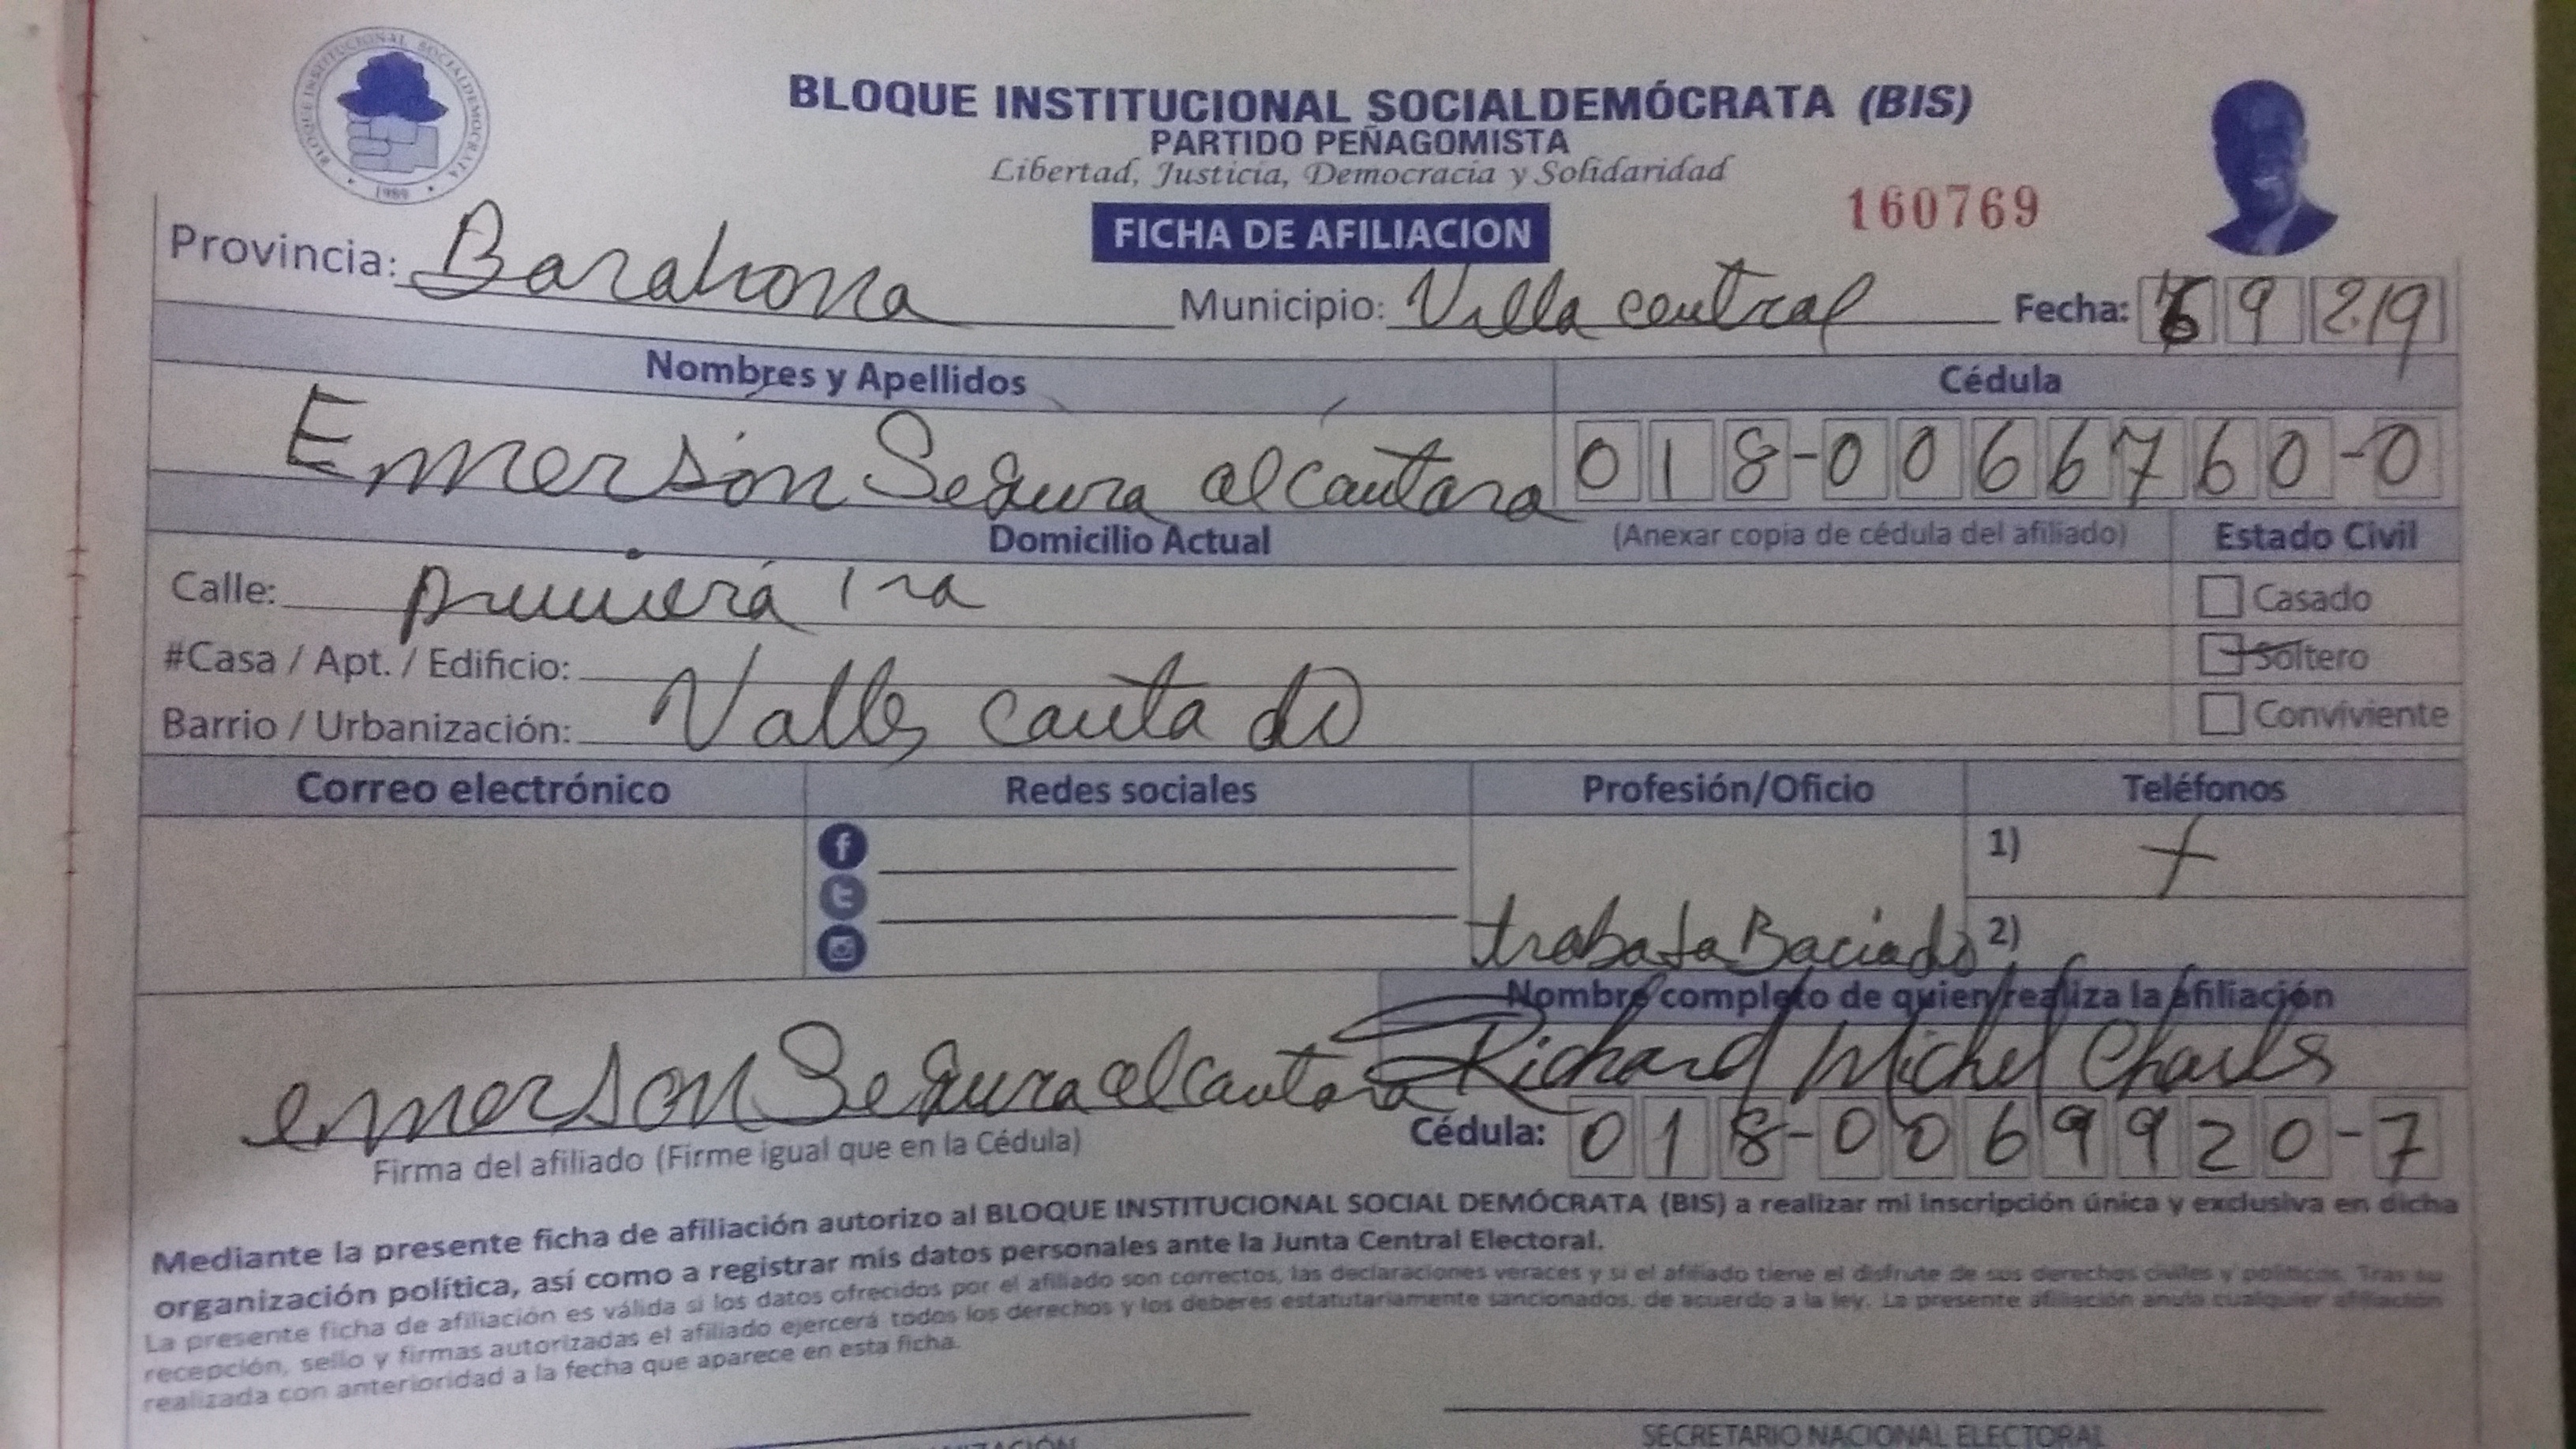 BLOQUE INSTITUCIONAL SOCIALDEMÓCRATA
1989
BLOQUE INSTITUCIONAL SOCIALDEMÓCRATA (BIS)
PARTIDO PEÑAGOMISTA
Libertad, Justicia, Democracia y Solidaridad
160769
FICHA DE AFILIACION
Provincia: Barahona Municipio: Villa central Fecha: 9 219
Nombres y Apellidos Cédula
Emerson Segura alcantara 018-0066760-0
Domicilio Actual (Anexar copia de cédula del afiliado) Estado Civil
Calle: primera 1ra Casado
#Casa / Apt. / Edificio: Soltero
Barrio / Urbanización: Valle Conviviente
Correo electrónico Redes sociales Profesión/Oficio Teléfonos
1)
2)
Nombre completo de quien realiza la afiliación
emerson Segura alcantara Richard Michel Charls
Firma del afiliado (Firme igual que en la Cédula) Cédula: 018-0069920-7
Mediante la presente ficha de afiliación autorizo al BLOQUE INSTITUCIONAL SOCIAL DEMÓCRATA (BIS) a realizar mi inscripción única y exclusiva en dicha
organización política, así como a registrar mis datos personales ante la Junta Central Electoral.
La presente ficha de afiliación es válida si los datos ofrecidos por el afiliado son correctos, las declaraciones veraces y si el afiliado tiene el disfrute de sus derechos civiles y políticos. Tras su
recepción, sello y firmas autorizadas el afiliado ejercerá todos los derechos y los deberes estatutariamente sancionados, de acuerdo a la ley. La presente afiliación anula cualquier afiliación
realizada con anterioridad a la fecha que aparece en esta ficha.
SECRETARIO NACIONAL ELECTORAL